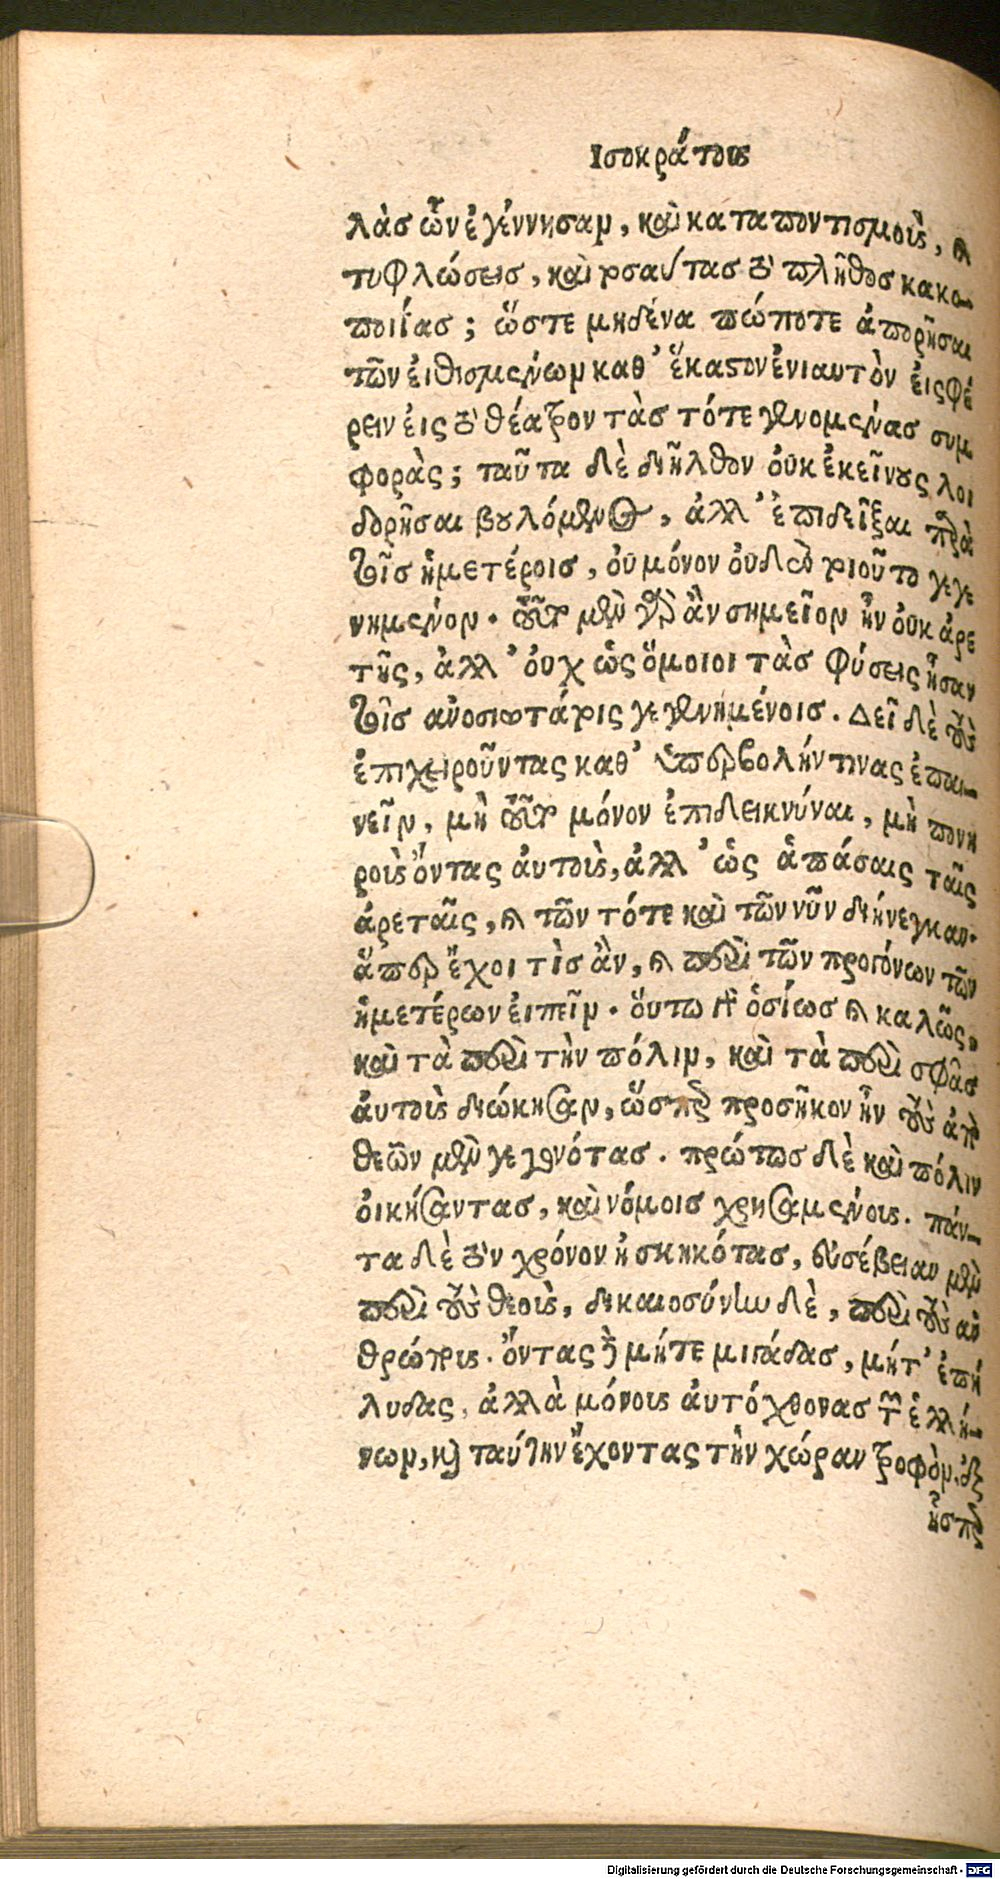 Ισοκράτους
λὰσ ὧν ἐγέννησαν, καὶ καταποντισμοὺς, καὶ
τυφλώσεισ, καὶ τοσαύτασ τὸ πλῆθοσ κακο-
ποιίας; ὥστε μηδένα πώποτε ἀπορῆσαι
τῶν ἐιθισμένων καθ’ ἕκαστον ἐνιαυτὸν ἐισφέ
ρειν ἐις τὸ θέατρον τὰσ τότε γενομένασ συμ
φοράς; ταῦτα δὲ διῆλθον ὀυκ ἐκείνους λοι
δορῆσαι βουλόμενος, ἀλλ’ ἐπιδεῖξαι παρὰ
τοῖσ ἡμετέροισ, ὀυ μόνον ὀυδὲν τοιοῦτο γεγε
νημένον. τοῦτο μὲν γὰρ ἂν σημεῖον ἦν ὀυκ ἀρε
τῆς, ἀλλ’ ὀυχ ὡς ὅμοιοι τὰσ φύσεις ἦσαν
τοῖσ ἀνοσιωτάτοις γεγενημένοισ. Δεῖ δὲ τοὺς
ἐπιχειροῦντας καθ’ ὑπερβολήν τινας ἐπαι-
νεῖν, μὴ τοῦτο μόνον ἐπιδεικνύναι, μὴ πονη
ροὺς ὄντας ἀυτοὺς, ἀλλ’ ὡς ἁπάσαις ταῖς
ἀρεταῖς, καὶ τῶν τότε καὶ τῶν νῦν διήνεγκαν.
ἅπερ ἔχοι τὶσ ἂν, καὶ περὶ τῶν προγόνων τῶν
ἡμετέρων ἐιπεῖν. ὅυτω γὰρ ὁσίωσ καὶ καλῶς,
καὶ τὰ περὶ τὴν πόλιν, καὶ τὰ περὶ σφᾶσ
ἀυτοὺς διώκησαν, ὥσπερ προσῆκον ἦν τοὺς ἀπὸ
θεῶν μὲν γεγονότασ. πρώτουσ δὲ καὶ πόλιν
ὀικήσαντασ, καὶ νόμοισ χρησαμένους. πάν-
τα δὲ τὸν χρόνον ἠσκηκότασ, ἐυσέβειαν μὲν
περὶ τοὺς θεοὺς, δικαιοσύνην δὲ, περὶ τοὺς ἀν
θρώπους. ὄντας δὲ μήτε μιγάδασ, μήτ’ ἐπή
λυδας, ἀλλὰ μόνους ἀυτόχθονασ τῶν ἑλλή-
νων, καὶ ταύτην ἔχοντας τὴν χώραν τροφὸν, ἐξ
ἧσπερ
Digitalisierung gefördert durch die Deutsche Forschungsgemeinschaft - DFG